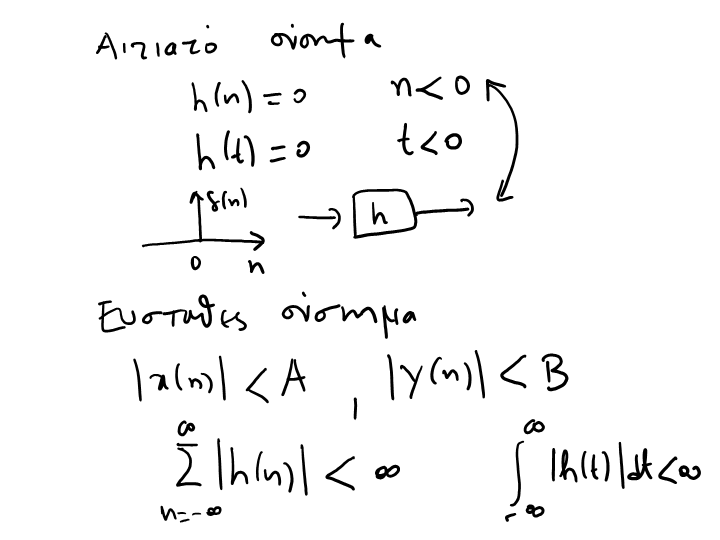 Αιτιατό σύστημα
h(n) = 0 n < 0
h(t) = 0 t < 0
δ(n)
h
0 n
Ευσταθές σύστημα
|x(n)| < A , |y(n)| < B
∑_{n=-∞}^{∞} |h(n)| < ∞ ∫_{-∞}^{∞} |h(t)| dt < ∞